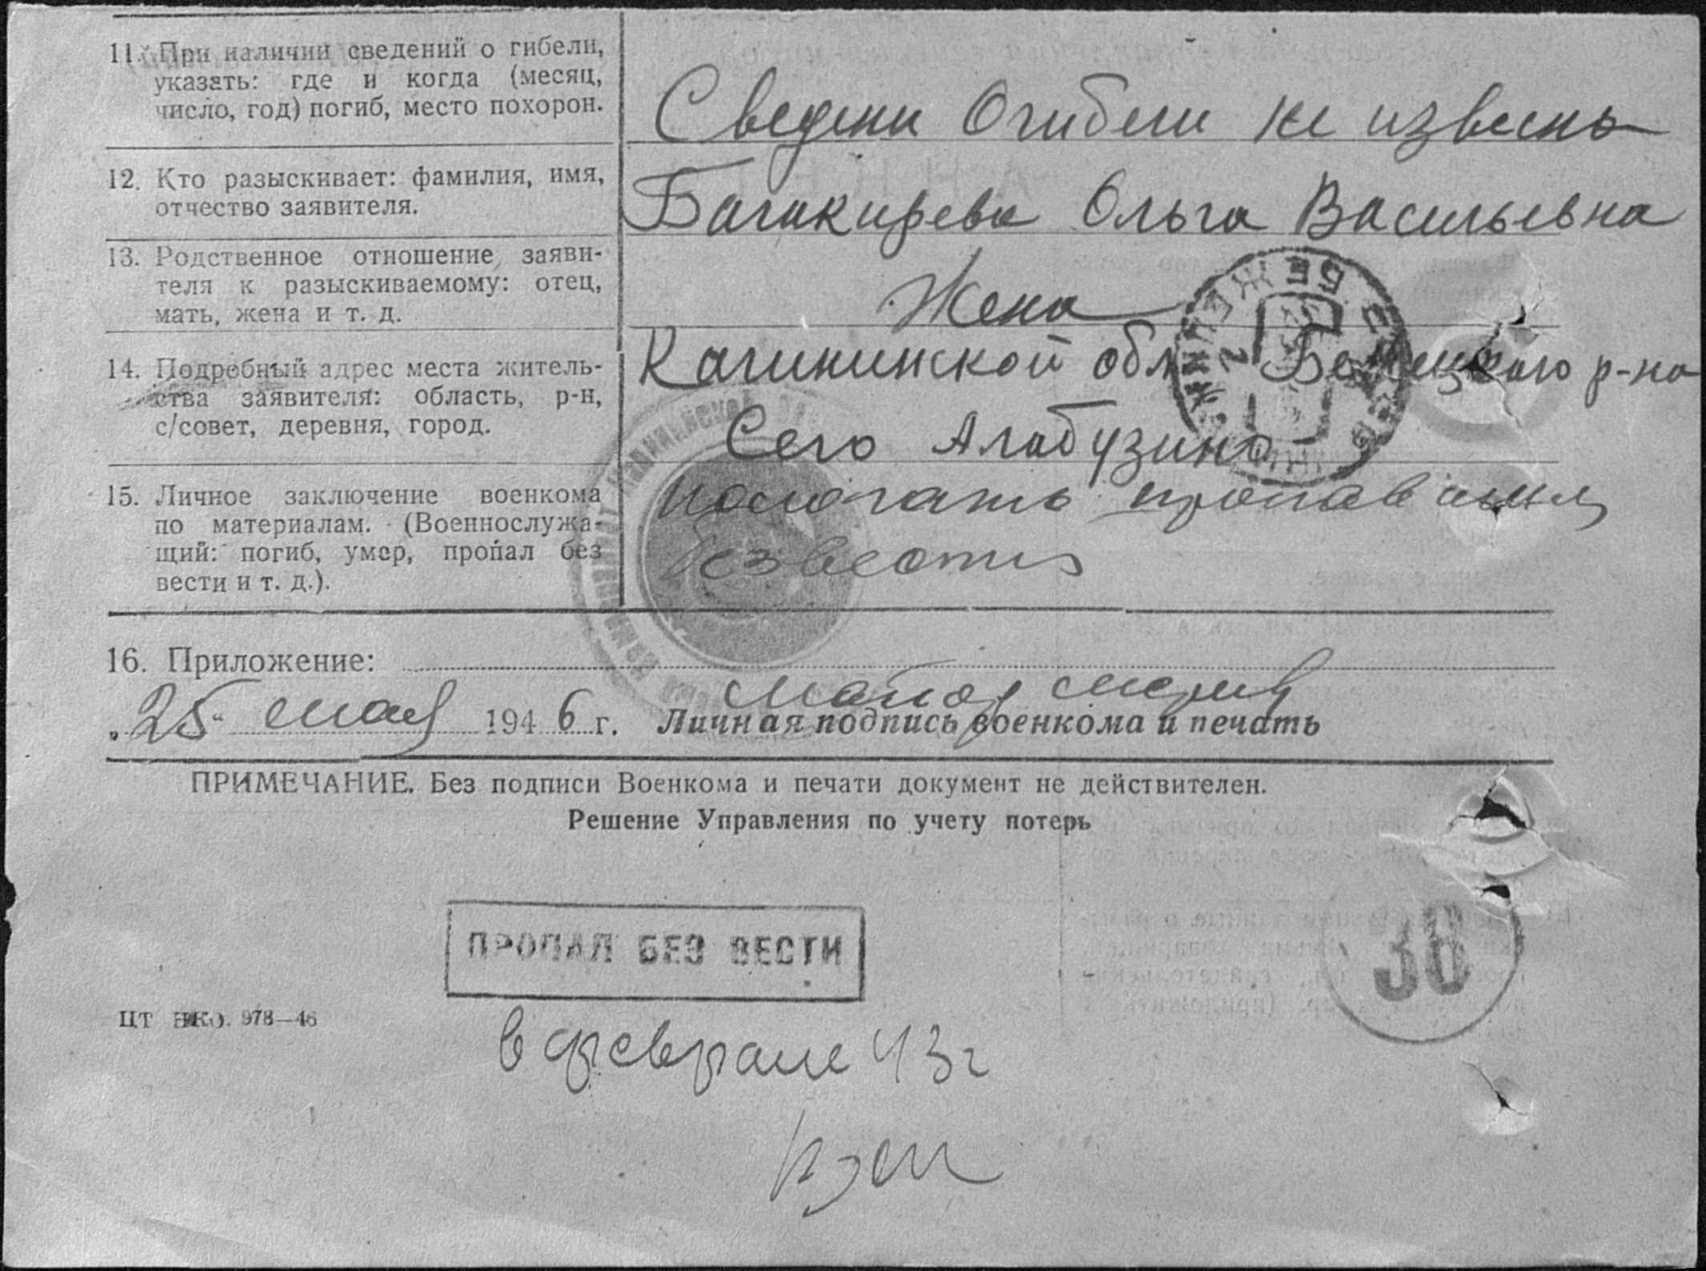 11. При наличии сведений о гибели,
указать: где и когда (месяц,
число, год) погиб, место похорон.
Сведени Огибели не извесны
12. Кто разыскивает: фамилия, имя,
отчество заявителя.
Багакирева Ольга Васильевна
13. Родственное отношение заяви-
теля к разыскиваемому: отец,
мать, жена и т. д.
Жена
14. Подробный адрес места житель-
ства заявителя: область, р-н,
с/совет, деревня, город.
Калининской обл Бежецкого р-на
Село Алабузино
15. Личное заключение военкома
по материалам. (Военнослужа-
щий: погиб, умер, пропал без
вести и т. д.).
пологать пропавшим
безвести
16. Приложение:
майор
„25" мая 1946 г. Личная подпись военкома и печать
ПРИМЕЧАНИЕ. Без подписи Военкома и печати документ не действителен.
Решение Управления по учету потерь
38
ПРОПАЛ БЕЗ ВЕСТИ
ЦТ НКО. 978—46
в феврале 43г